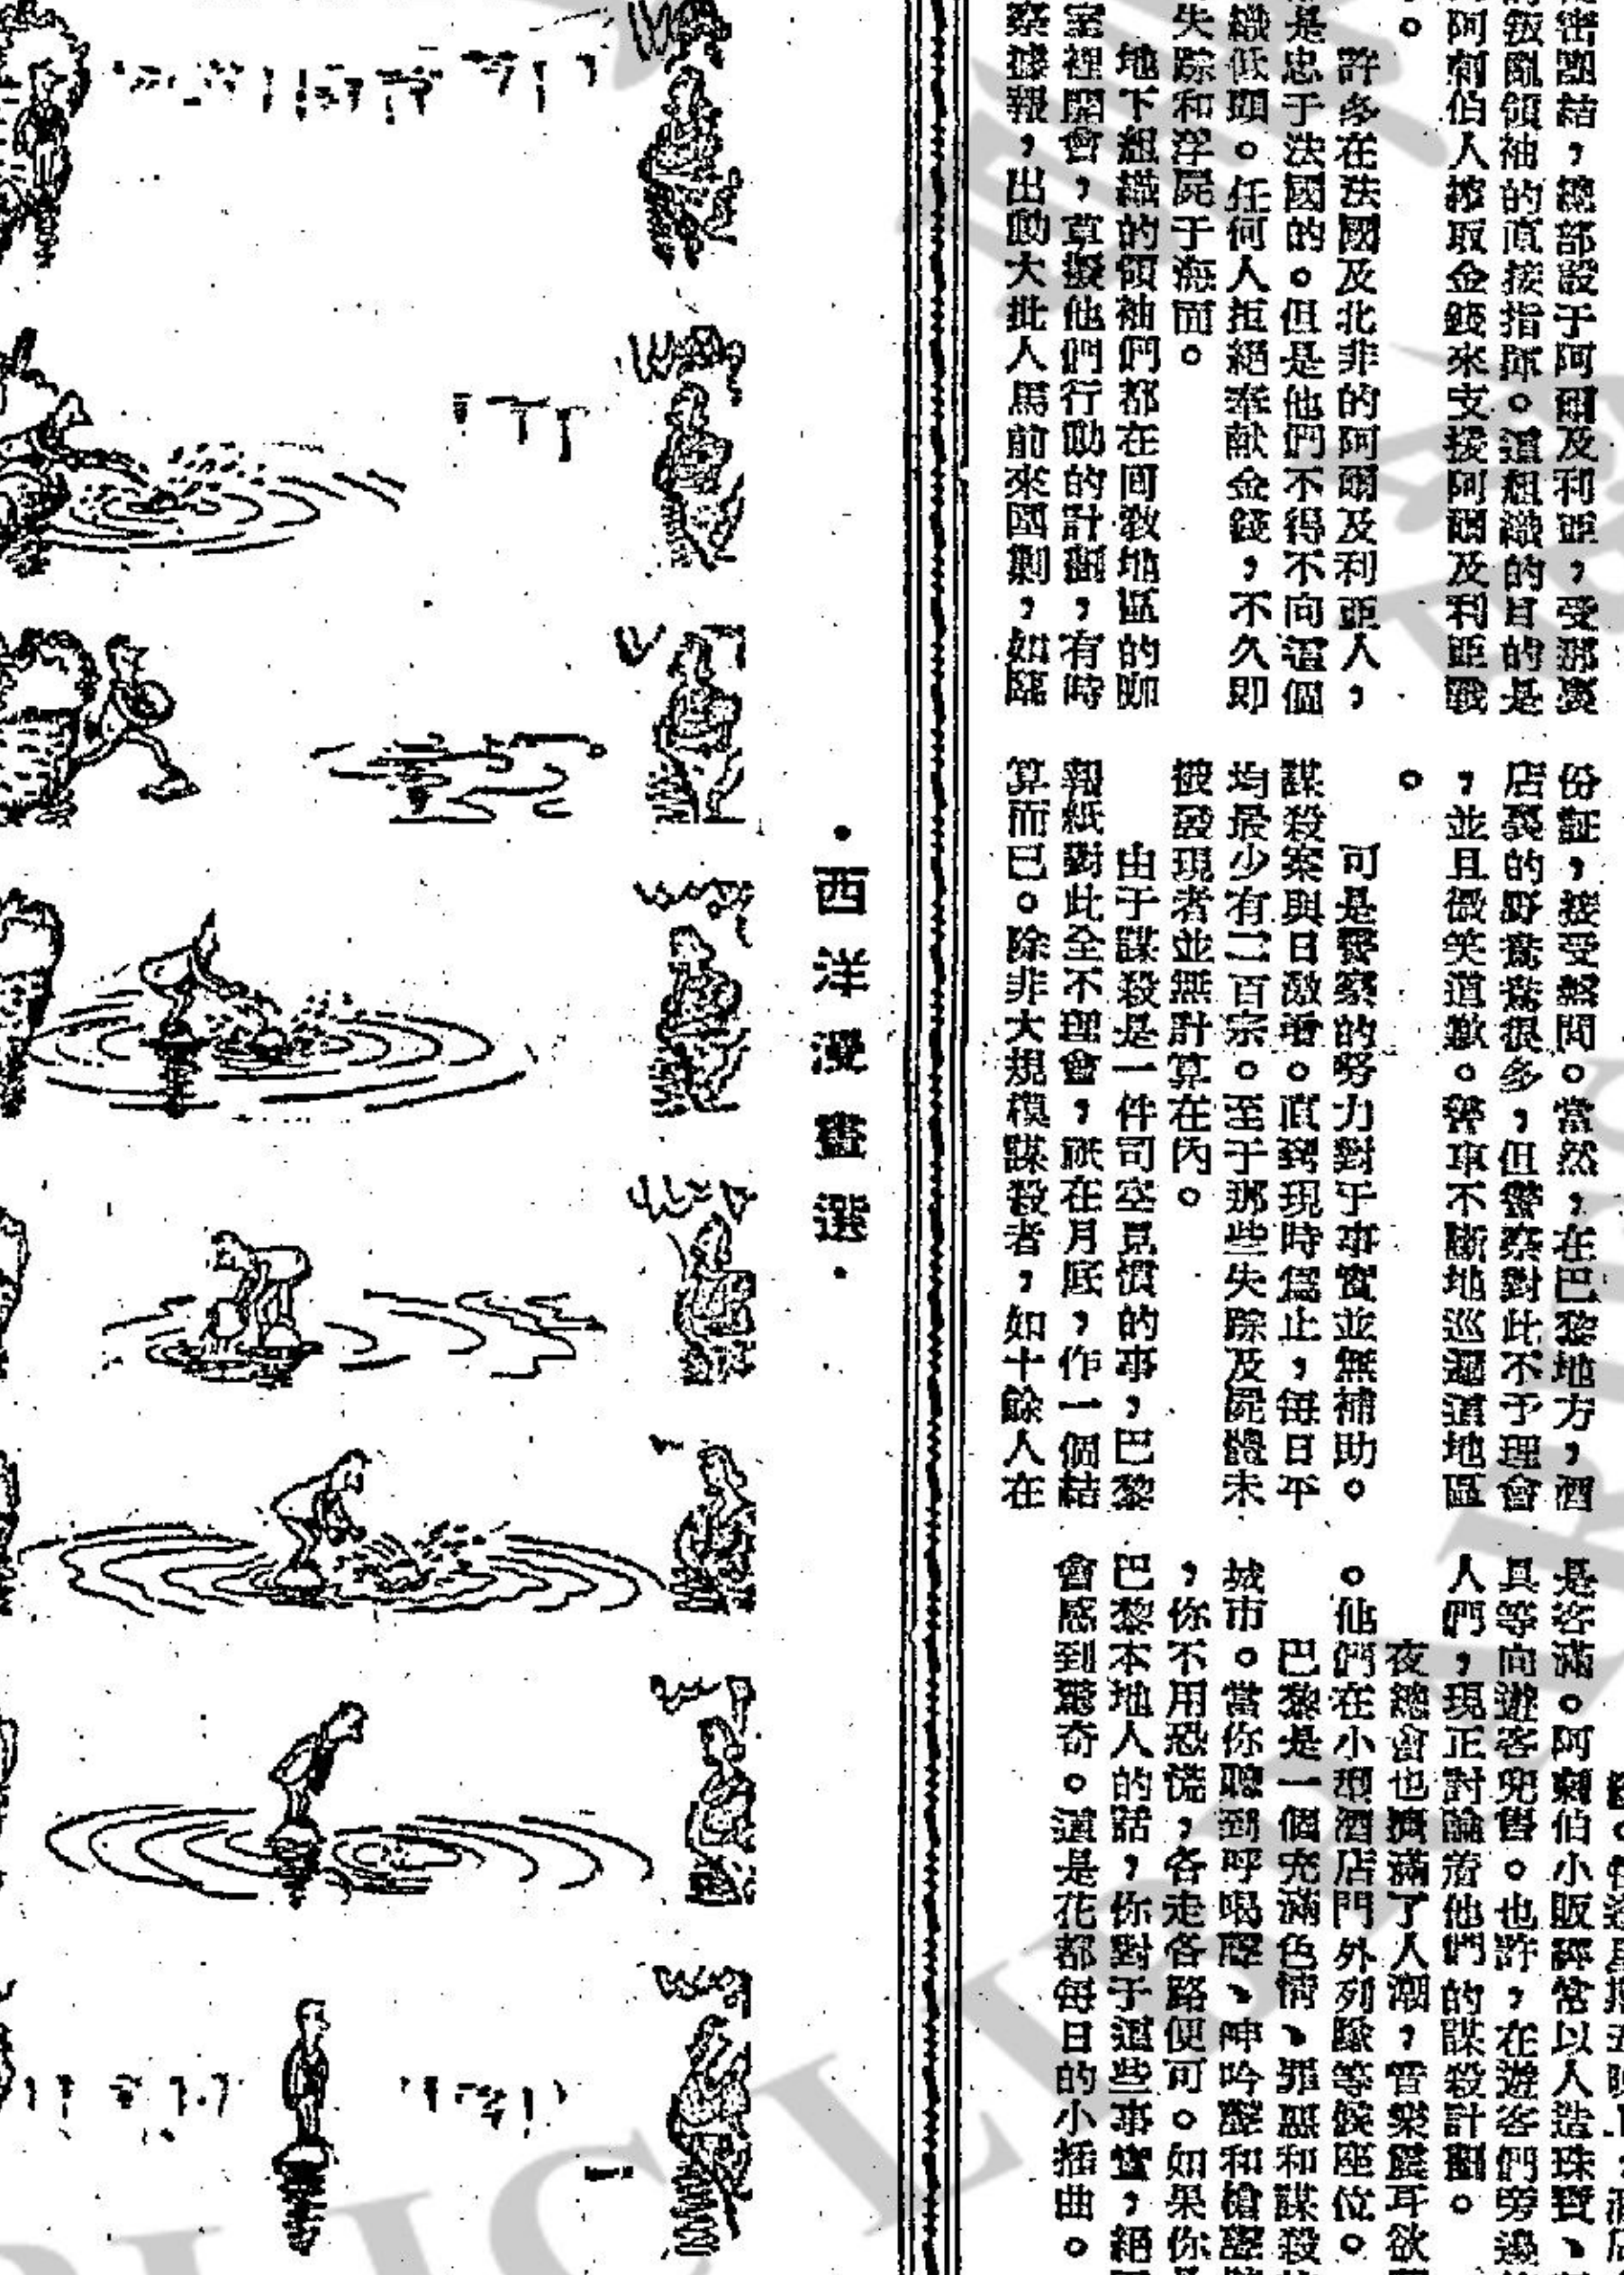 密團結，總部設于阿爾及利亞，受那裏
叛亂領袖的直接指揮。這組織的目的是
阿剌伯人榨取金錢來支援阿爾及利亞戰
。
許多在法國及北非的阿爾及利亞人，
是忠于法國的。但是他們不得不向這個
織低頭。任何人拒絕奉献金錢，不久即
失踪和浮屍于海面。
地下組織的領袖們都在回教地區的咖
室裡開會，草擬他們行動的計劃，有時
察據報，出動大批人馬前來圍剿，如臨
份証，接受熬問。當然，在巴黎地方，酒
店裏的野鴛鴦很多，但警察對此不予理會
，並且微笑道歉。警車不斷地巡邏這地區
。
可是警察的努力對于事實並無補助。
謀殺案與日激增。直到現時爲止，每日平
均最少有二百宗。至于那些失踪及屍體未
被發現者並無計算在內。
由于謀殺是一件司空見慣的事，巴黎
報紙對此全不理會，祇在月底，作一個結
算而已。除非大規模謀殺者，如十餘人在
是客滿。阿剌伯小販經常以人造珠寶、
具等向遊客兜售。也許，在遊客們旁邊
人們，現正討論着他們的謀殺計劃。
夜總會也擠滿了人潮，音樂震耳欲
。他們在小型酒店門外列隊等候座位。
巴黎是一個充滿色情、罪惡和謀殺
城市。當你聽到呼喝聲、呻吟聲和槍聲
，你不用恐慌，各走各路便可。如果你
巴黎本地人的話，你對于這些事實，絕
會感到驚奇。這是花都每日的小插曲。
·西洋漫畫選·
PUBLIC LIBRARIES